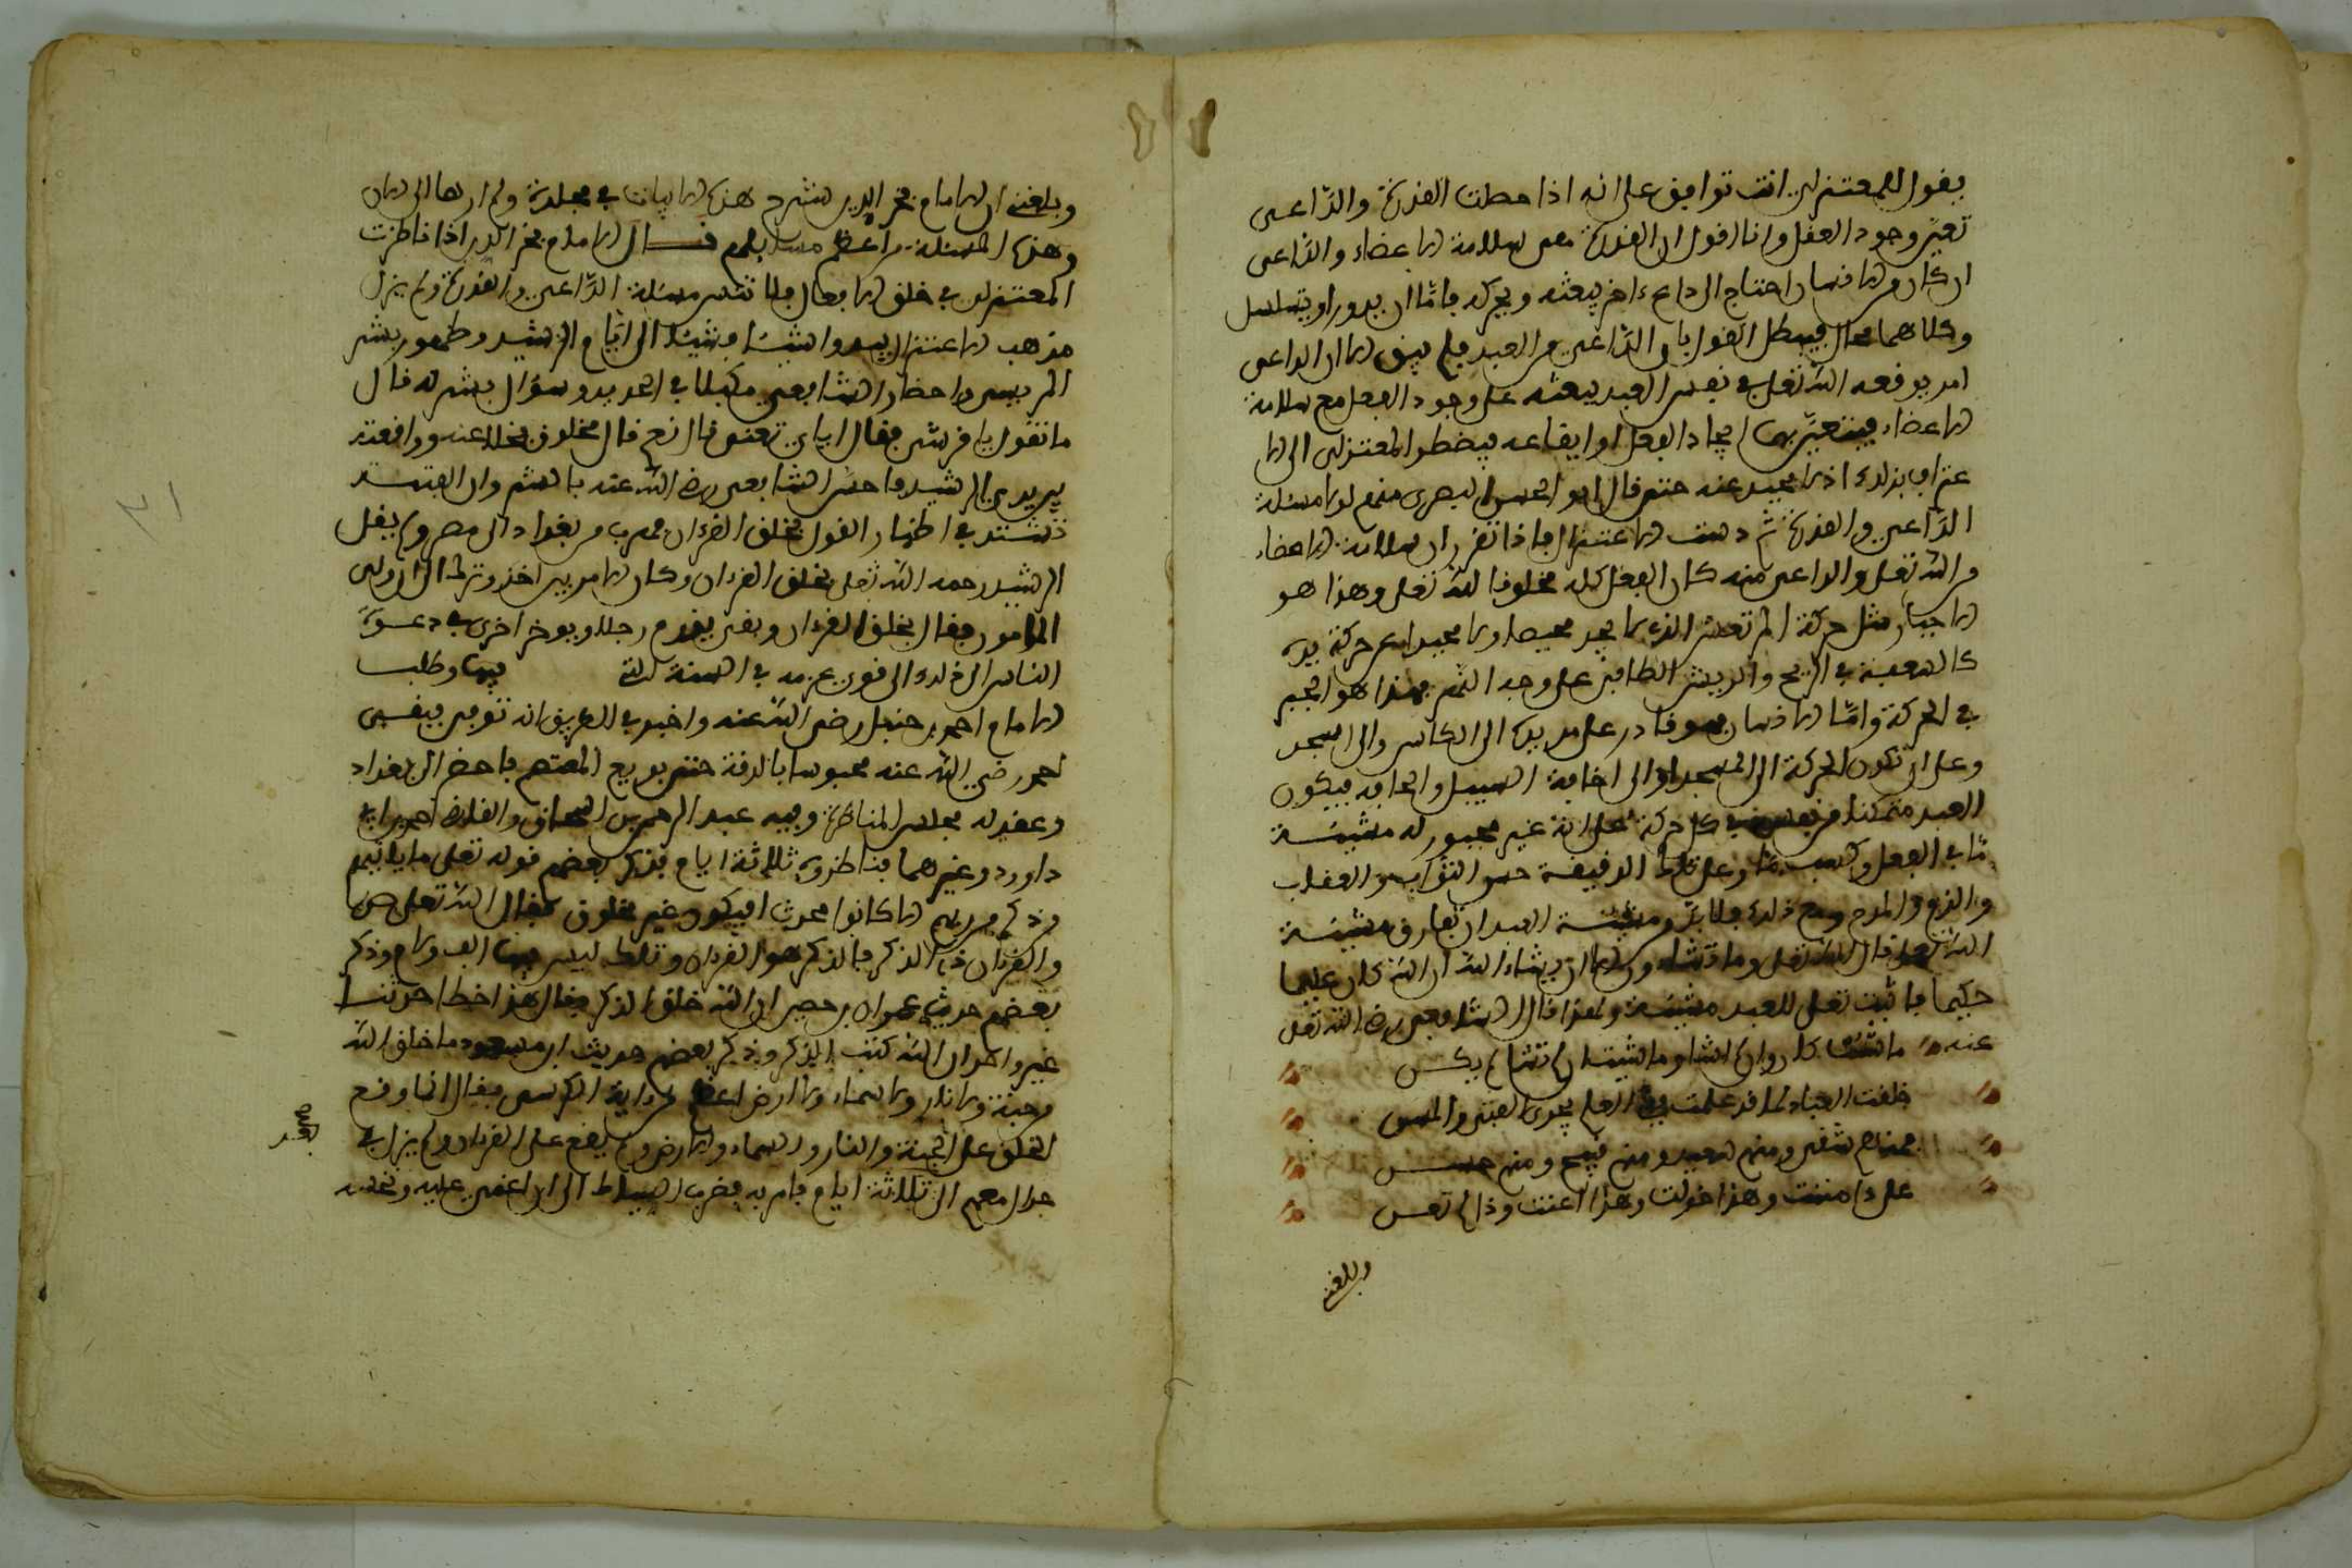 يقول للمعتزلي انت توافق على انه اذا حصلت القدرة والدّاعى
تعيّن وجود الفعل وانا اقول ان القدرة هى سلامة الاعضاء والدّاعى
ان كان من الانسان احتاج الى داعٍ ءاخر يبعثه ويحركه فامّا ان يدور او يتسلسل
وكلاهما محال فيبطل القول بان الدّاعى من العبد فلم يبق الا ان الداعى
امر يوقعه الله تعلى في نفس العبد يبعثه على وجود الفعل مع سلامة
الاعضاء فيتعيّن بهما ايجاد الفعل او ايقاعه فيضطر المعتزلى الى الا
عتراف بذلك اذ لا محيد عنه حتى قال ابو الحسين البصرى منهم لولا مسئلة
الدّاعى والقدرة تم دست الاعتزال فاذا تقرر ان سلامة الاعضاء
من الله تعلى والداعى منه كان الفعل كله مخلوقا لله تعلى وهذا هو
الاجبار مثل حركة المرتعش الذى لا يجد محيصا ولا محيدا عن حركة يده
كالسعفة في الريح والريش الطافى على وجه النهر فهذا هو الجبر
في الحركة وامّا الانسان فهو قادر على مد يده الى الكاس والى المسجد
وعلى ان تكون الحركة الى المسجد او الى اخافة السبيل والحانة فيكون
العبد متمكنا من نفسه في كل حركة على انه غير مجبور له مشيئة
مّا في الفعل وكسب مّا وعلى تلك الدقيقة حسن الثواب والعقاب
والذم والمدح ومع ذلك فلا بدّ ومشيئة العبد ان تقارن مشيئة
الله تعلى قال الله تعلى وما تشاءون الا ان يشاء الله ان الله كان عليما
حكيما فاثبت تعلى للعبد مشيئة ولهذا قال الشافعى رضى الله تعلى
عنه ما شئت كان وان لم اشا وما شئت ان لم تشا لم يكن
خلقت العباد لما قد علمت ففى العلم يجرى الفتى والمسن
فمنهم شقى ومنهم سعيد ومنهم قبيح ومنهم حسن
على ذا مننت وهذا خذلت وهذا اعنت وذا لم تعن
وبلغنى
وبلغنى ان الامام فخر الدين شرح هذه الابيات في مجلدة ولم ارها الى الان
وهذه المسئلة من اعظم مسائلهم قال الامام فخر الدين اذا ناظرت
المعتزلى في خلق الافعال فلا تنس مسئلة الدّاعى والقدرة ولم يزل
مذهب الاعتزال يبدوا شيئا فشيئا الى ايّام الرشيد وظهور بشر
المريسى واحضار الشافعى مكبلا في الحديد وسؤال بشر له قال
ما تقول يا قرشى فقال اياى تعنى قال نعم قال مخلوق فخلا عنه وواقعته
بين يدى الرشيد فاحسّ الشافعى رضى الله عنه بالشر وان الفتنة
تشتد في اظهار القول بخلق القرءان فهرب من بغداد الى مصر ولم يقل
الرشيد رحمه الله تعلى بخلق القرءان وكان الامر بين اخذ وترك الى ان ولى
المامون فقال بخلق القرءان وبقى يقدم رجلا ويوخر اخرى في دعوة
الناس الى ذلك الى قوى عزمه في السنة التى فيها وطلب
الامام احمد بن حنبل رضى الله عنه واخبر في الطريق انه توفى فبقى
احمد رضى الله عنه محبوسا بالرقة حتى بويع المعتصم فاحضر الى بغداد
وعقد له مجلس المناظرة وفيه عبد الرحمن بن اسحاق والقاضى احمد بن ابى
داوود وغيرهما فناظروه ثلاثة ايام فذكر بعضهم قوله تعلى ما ياتيهم
من ذكر من ربهم الا كانوا محدث افيكون غير مخلوق فقال الله تعلى ص
والقرءان ذى الذكر فالذكر هو القرءان وتلك ليس فيها الف ولام وذكر
بعضهم حديث عمران بن حصين ان الله خلق الذكر فقال هذا خطا حدثنا
غير واحد ان الله كتب الذكر وذكر بعضهم حديث ابن مسعود ما خلق الله
من جنة ولا نار ولا سماء ولا ارض اعظم من ءاية الكرسى فقال انما وقع
الخلق على الجنة والنار والسماء والارض ولم يقع على القرءان ولم يزل في
جدال معهم الى ثلاثة ايام فامر به فضرب بالسياط الى ان اغمى عليه ونخسه